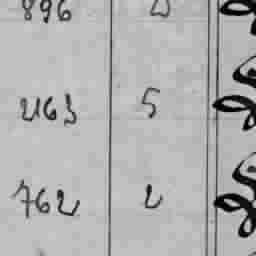 896
2163 5
762 2